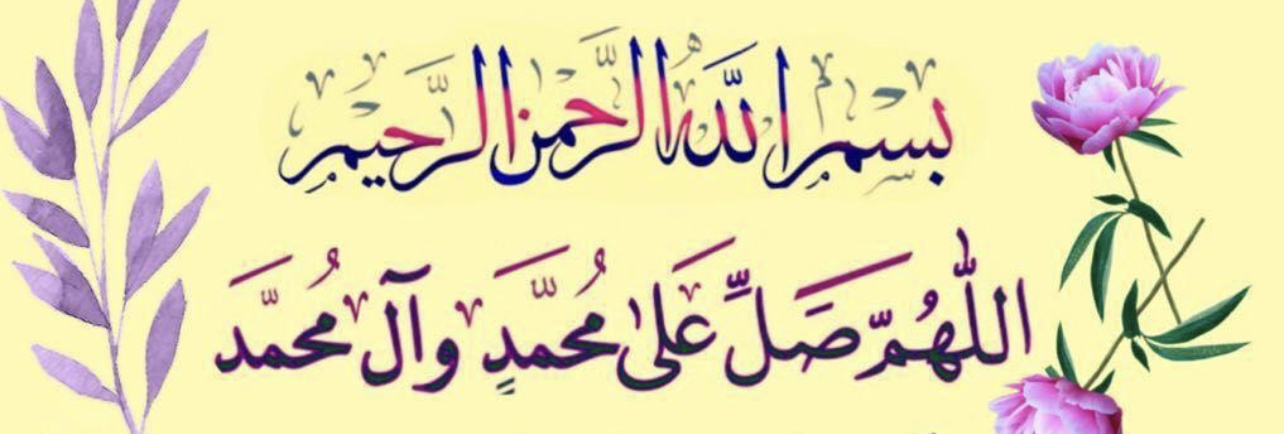 بسم الله الرحمن الرحيم
اللّٰهُمَّ صَلِّ عَلىٰ مُحَمَّدٍ وآلِ مُحَمَّد